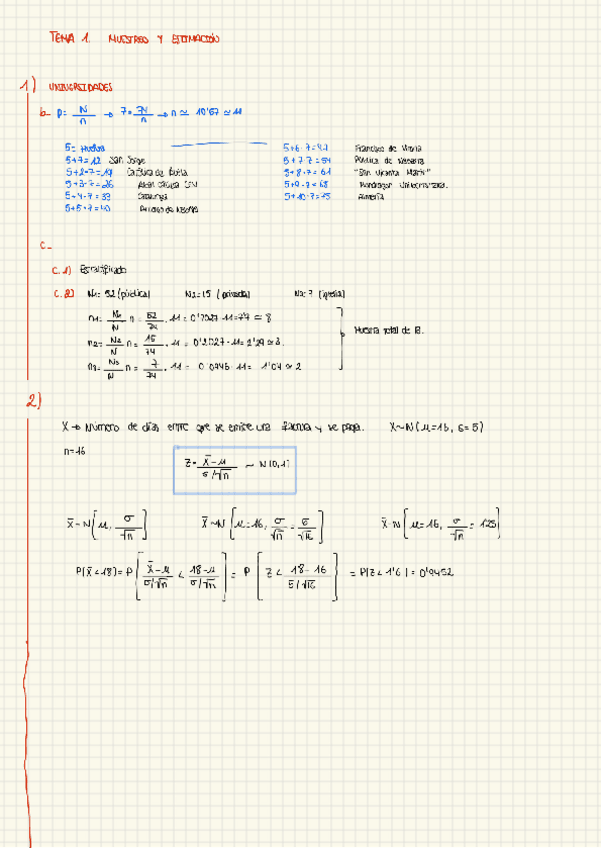 TEMA 1. MUESTREO Y ESTIMACIÓN
1) UNIVERSIDADES
b- p = N/n → 7 = 74/n → n ≃ 10'57 ≃ 11
5 = Huelva
5+7=12 San Jorge
5+2·7=19 Católica de Ávila
5+3·7=26
5+4·7=33
5+5·7=40 Antonio de Nebrija
5+6·7=47 Francisco de Vitoria
5+7·7=54 Pública de Navarra
5+8·7=61 "San Vicente Mártir"
5+9·7=68 Mondragon Unibertsitatea.
5+10·7=75 Almería
C-
C.1) Estratificado
C.2) N1=52 (pública) N2=15 (privada) N3=7 (iglesia)
n1= N1/N n = 52/74 · 11 = 0'7027·11=7'7 ≃ 8
n2= N2/N n = 15/74 · 11 = 0'2027·11= 2'29 ≃ 3.
n3= N3/N n = 7/74 · 11 = 0'0946·11= 1'04 ≃ 2
Muestra total de 13.
2)
X → Número de días entre que se emite una factura y se paga. X~N(μ=16, σ=5)
n=16
Z = X̄-μ / σ/√n ~ N(0,1)
X̄ ~ N[μ, σ/√n] X̄ ~ N[μ=16, σ/√n = σ/√16] X̄ ~ N[μ=16, σ/√n = 1'25]
P(X̄<18) = P[X̄-μ / σ/√n < 18-μ / σ/√n] = P[Z < 18-16 / 5/√16] = P(Z<1'6) = 0'9452